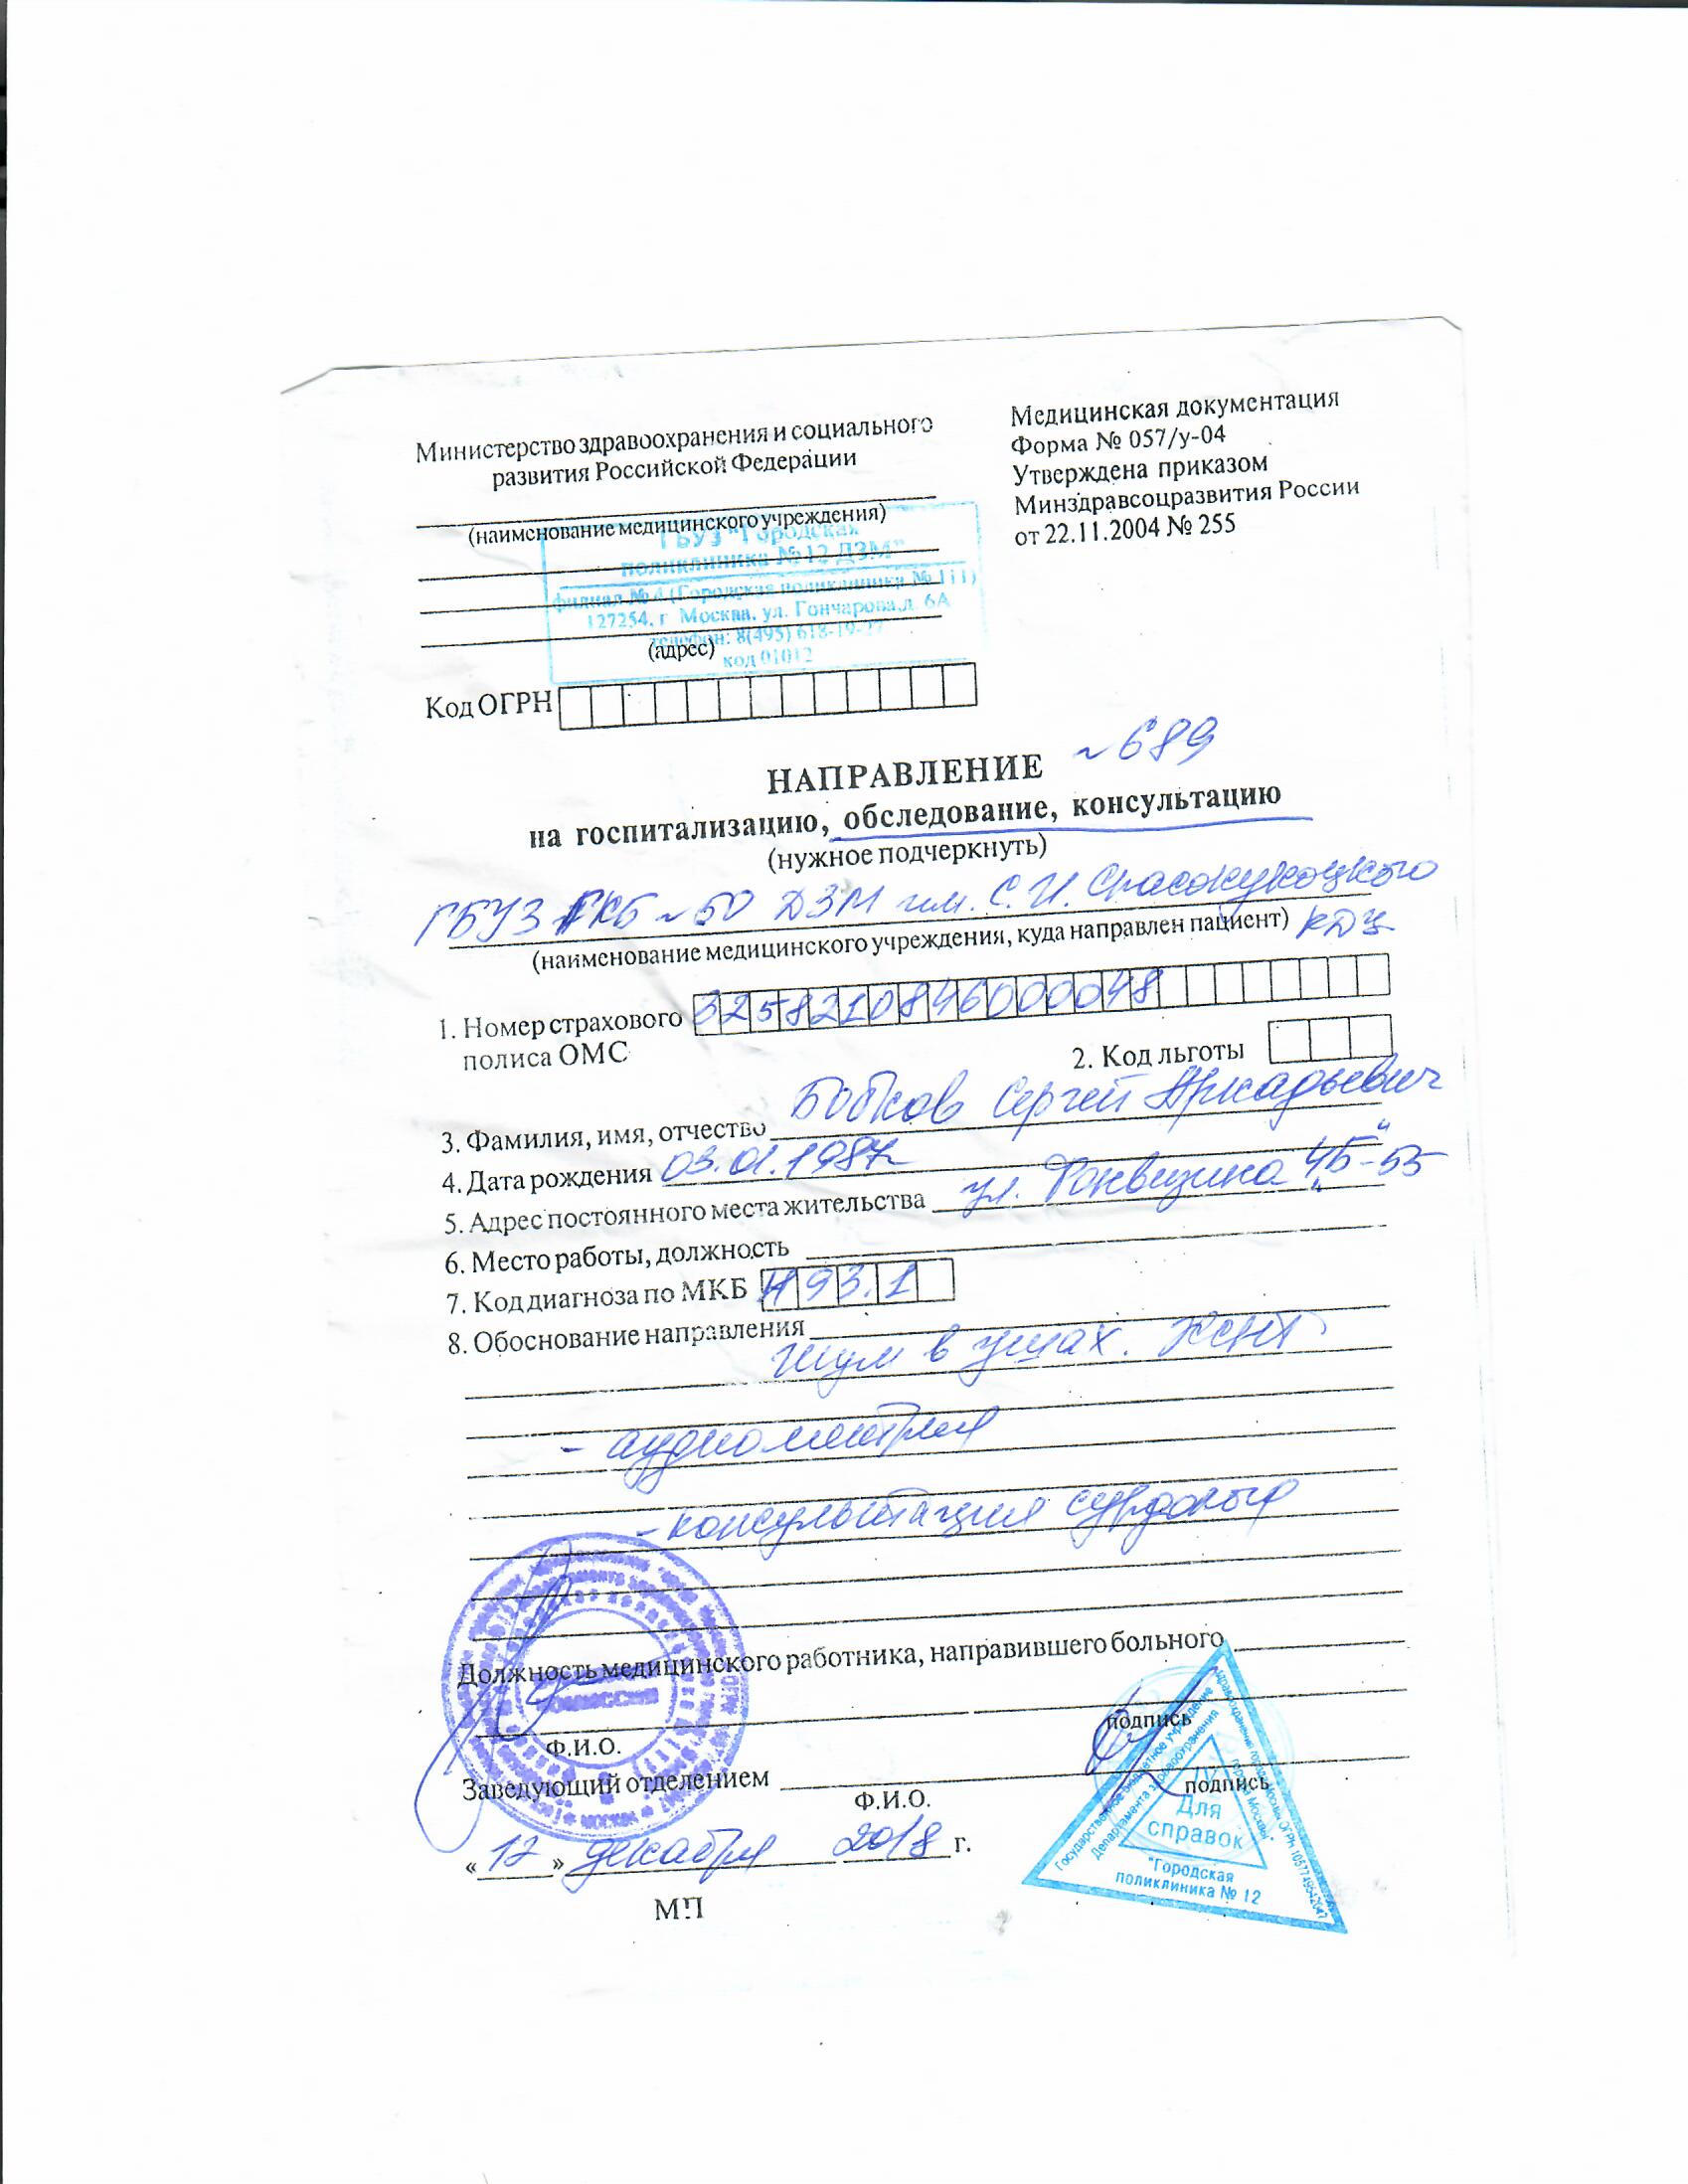 Министерство здравоохранения и социального
развития Российской Федерации
(наименование медицинского учреждения)
ГБУЗ "Городская
поликлиника № 12 ДЗМ"
филиал № 4 (Городская поликлиника № 111)
127254, г. Москва, ул. Гончарова, д. 6А
телефон: 8(495) 618-19-27
(адрес)
код 01012
Код ОГРН
Медицинская документация
Форма № 057/у-04
Утверждена приказом
Минздравсоцразвития России
от 22.11.2004 № 255
НАПРАВЛЕНИЕ ~689
на госпитализацию, обследование, консультацию
(нужное подчеркнуть)
ГБУЗ ГКБ ~50 ДЗМ им. С.И. Спасокукоцкого
(наименование медицинского учреждения, куда направлен пациент) КДЦ
1. Номер страхового 3258210846000048
полиса ОМС
2. Код льготы
3. Фамилия, имя, отчество Бобков Сергей Аркадьевич
4. Дата рождения 03.01.1987
5. Адрес постоянного места жительства ул. Фонвизина 4"Б"-55
6. Место работы, должность
7. Код диагноза по МКБ H93.1
8. Обоснование направления
Шум в ушах. ХСНТ
- аудиометрия
- консультация сурдолога
Должность медицинского работника, направившего больного
Ф.И.О.
подпись
Заведующий отделением
Ф.И.О.
подпись
«12» декабря 2018 г.
МП
Государственное бюджетное учреждение
здравоохранения города Москвы
Департамента здравоохранения
города Москвы"
Для
справок
"Городская
поликлиника № 12